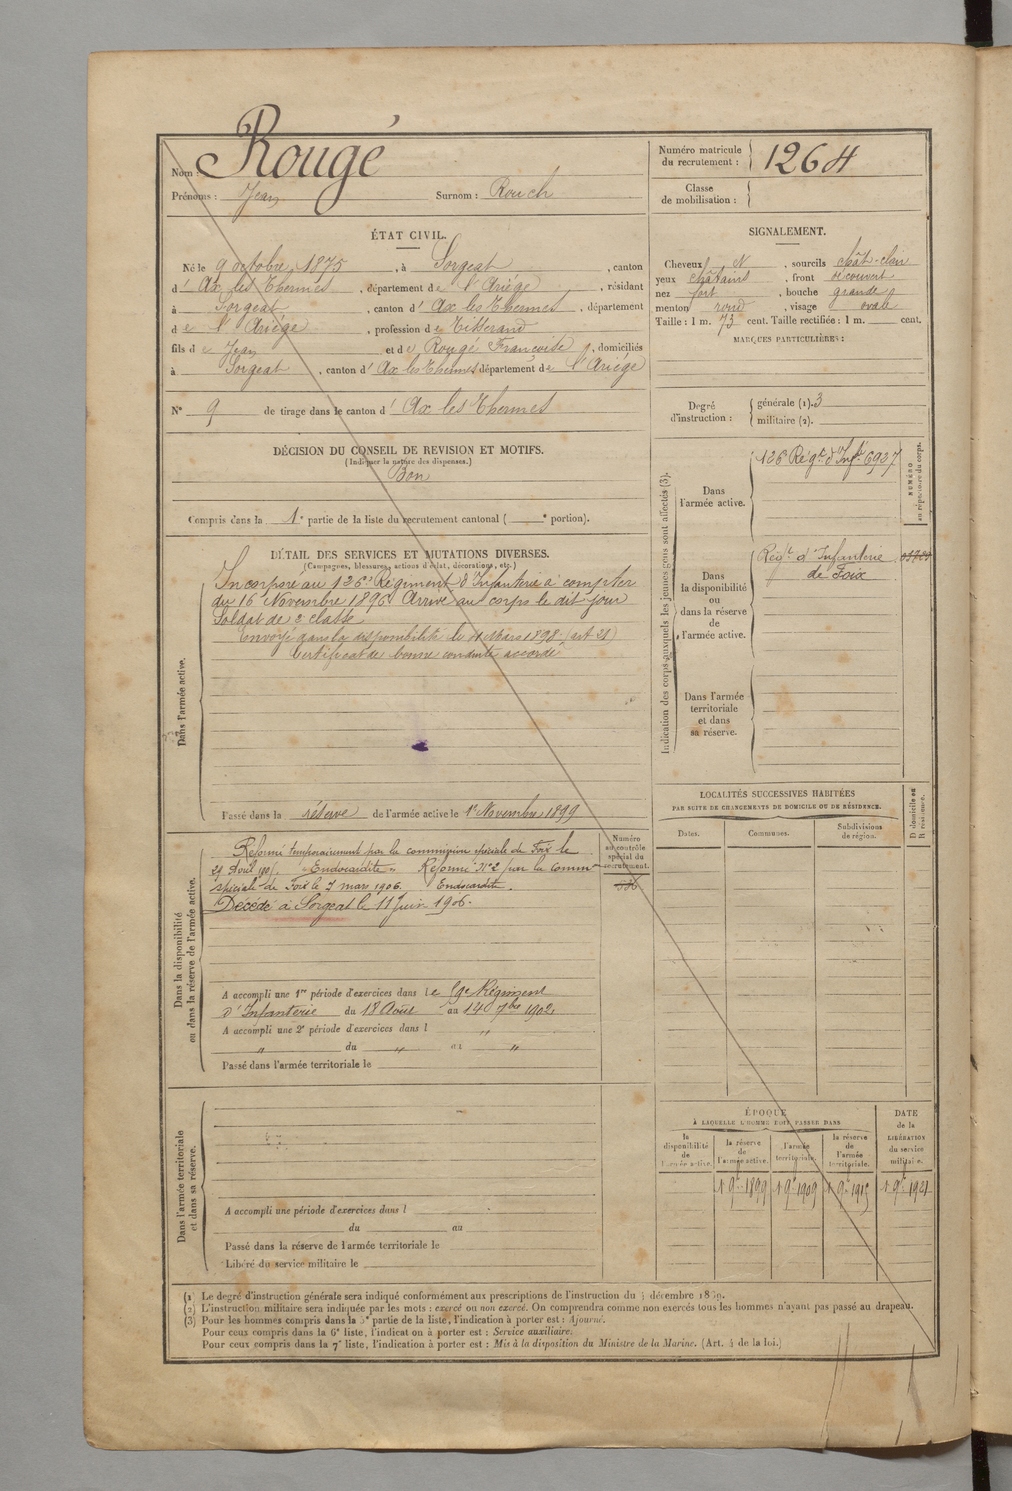 Nom : Rougé
Prénoms : Jean Surnom : Rouch
Numéro matricule
du recrutement : 1264
Classe
de mobilisation :
ÉTAT CIVIL.
Né le 9 octobre 1875, à Sorgeat, canton
d' Ax les Thermes, département de l'Ariége, résidant
à Sorgeat, canton d' Ax les Thermes, département
de l'Ariége, profession de Tisserand
fils de Jean et de Rougé Françoise, domiciliés
à Sorgeat, canton d' Ax les Thermes département de l'Ariége
N° 9 de tirage dans le canton d' Ax les Thermes
SIGNALEMENT.
Cheveux N, sourcils chât-clair
yeux châtains, front découvert
nez fort, bouche grande
menton rond, visage ovale
Taille : 1 m. 73 cent. Taille rectifiée : 1 m. cent.
MARQUES PARTICULIÈRES :
Degré
d'instruction :
générale (1). 3
militaire (2).
DÉCISION DU CONSEIL DE REVISION ET MOTIFS.
(Indiquer la nature des dispenses.)
Bon
Compris dans la 1e partie de la liste du recrutement cantonal ( e portion).
DÉTAIL DES SERVICES ET MUTATIONS DIVERSES.
(Campagnes, blessures, actions d'éclat, décorations, etc.)
Dans l'armée active.
Incorporé au 126e Régiment d'Infanterie à compter
du 16 Novembre 1896 Arrivé au corps le dit jour
Soldat de 2e classe
Envoyé dans la disponibilité le Mars 1898 (art 21)
Certificat de bonne conduite accordé
Passé dans la réserve de l'armée active le 1er Novembre 1899
Indication des corps auxquels les jeunes gens sont affectés (3).
Dans
l'armée active.
126e Régt d'Infie 6927
NUMÉRO
au répertoire du corps.
Dans
la disponibilité
ou
dans la réserve
de
l'armée active.
Régt d'Infanterie
de Foix
Dans l'armée
territoriale
et dans
sa réserve.
LOCALITÉS SUCCESSIVES HABITÉES
PAR SUITE DE CHANGEMENTS DE DOMICILE OU DE RÉSIDENCE.
Dates.
Communes.
Subdivisions
de région.
D domicile ou
R résidence.
Dans la disponibilité
ou dans la réserve de l'armée active.
Numéro
au contrôle
spécial du
recrutement.
Réformé temporairement par la commission spéciale de Foix le
Avril "Endocardite" Réformé N°2 par la Commn
spéciale de Foix le 7 mars 1906. Endocardite.
Décédé à Sorgeat le 11 Juin 1906.
A accompli une 1re période d'exercices dans le 59e Régiment
d'Infanterie du 18 Août au 14 7bre 1902
A accompli une 2e période d'exercices dans l "
" du " au "
Passé dans l'armée territoriale le
Dans l'armée territoriale
et dans sa réserve.
A accompli une période d'exercices dans l
du au
Passé dans la réserve de l'armée territoriale le
Libéré du service militaire le
ÉPOQUE
À LAQUELLE L'HOMME DOIT PASSER DANS
la
disponibilité
de
l'armée active.
la réserve
de
l'armée active.
l'armée
territoriale.
la réserve
de
l'armée
territoriale.
DATE
de la
LIBÉRATION
du service
militaire.
1 9e 1899 1 9e 1909 1 9e 1915 1 9e 1921
(1) Le degré d'instruction générale sera indiqué conformément aux prescriptions de l'instruction du 4 décembre 1889.
(2) L'instruction militaire sera indiquée par les mots : exercé ou non exercé. On comprendra comme non exercés tous les hommes n'ayant pas passé au drapeau.
(3) Pour les hommes compris dans la 5e partie de la liste, l'indication à porter est : Ajourné.
Pour ceux compris dans la 6e liste, l'indication à porter est : Service auxiliaire.
Pour ceux compris dans la 7e liste, l'indication à porter est : Mis à la disposition du Ministre de la Marine. (Art. 4 de la loi.)